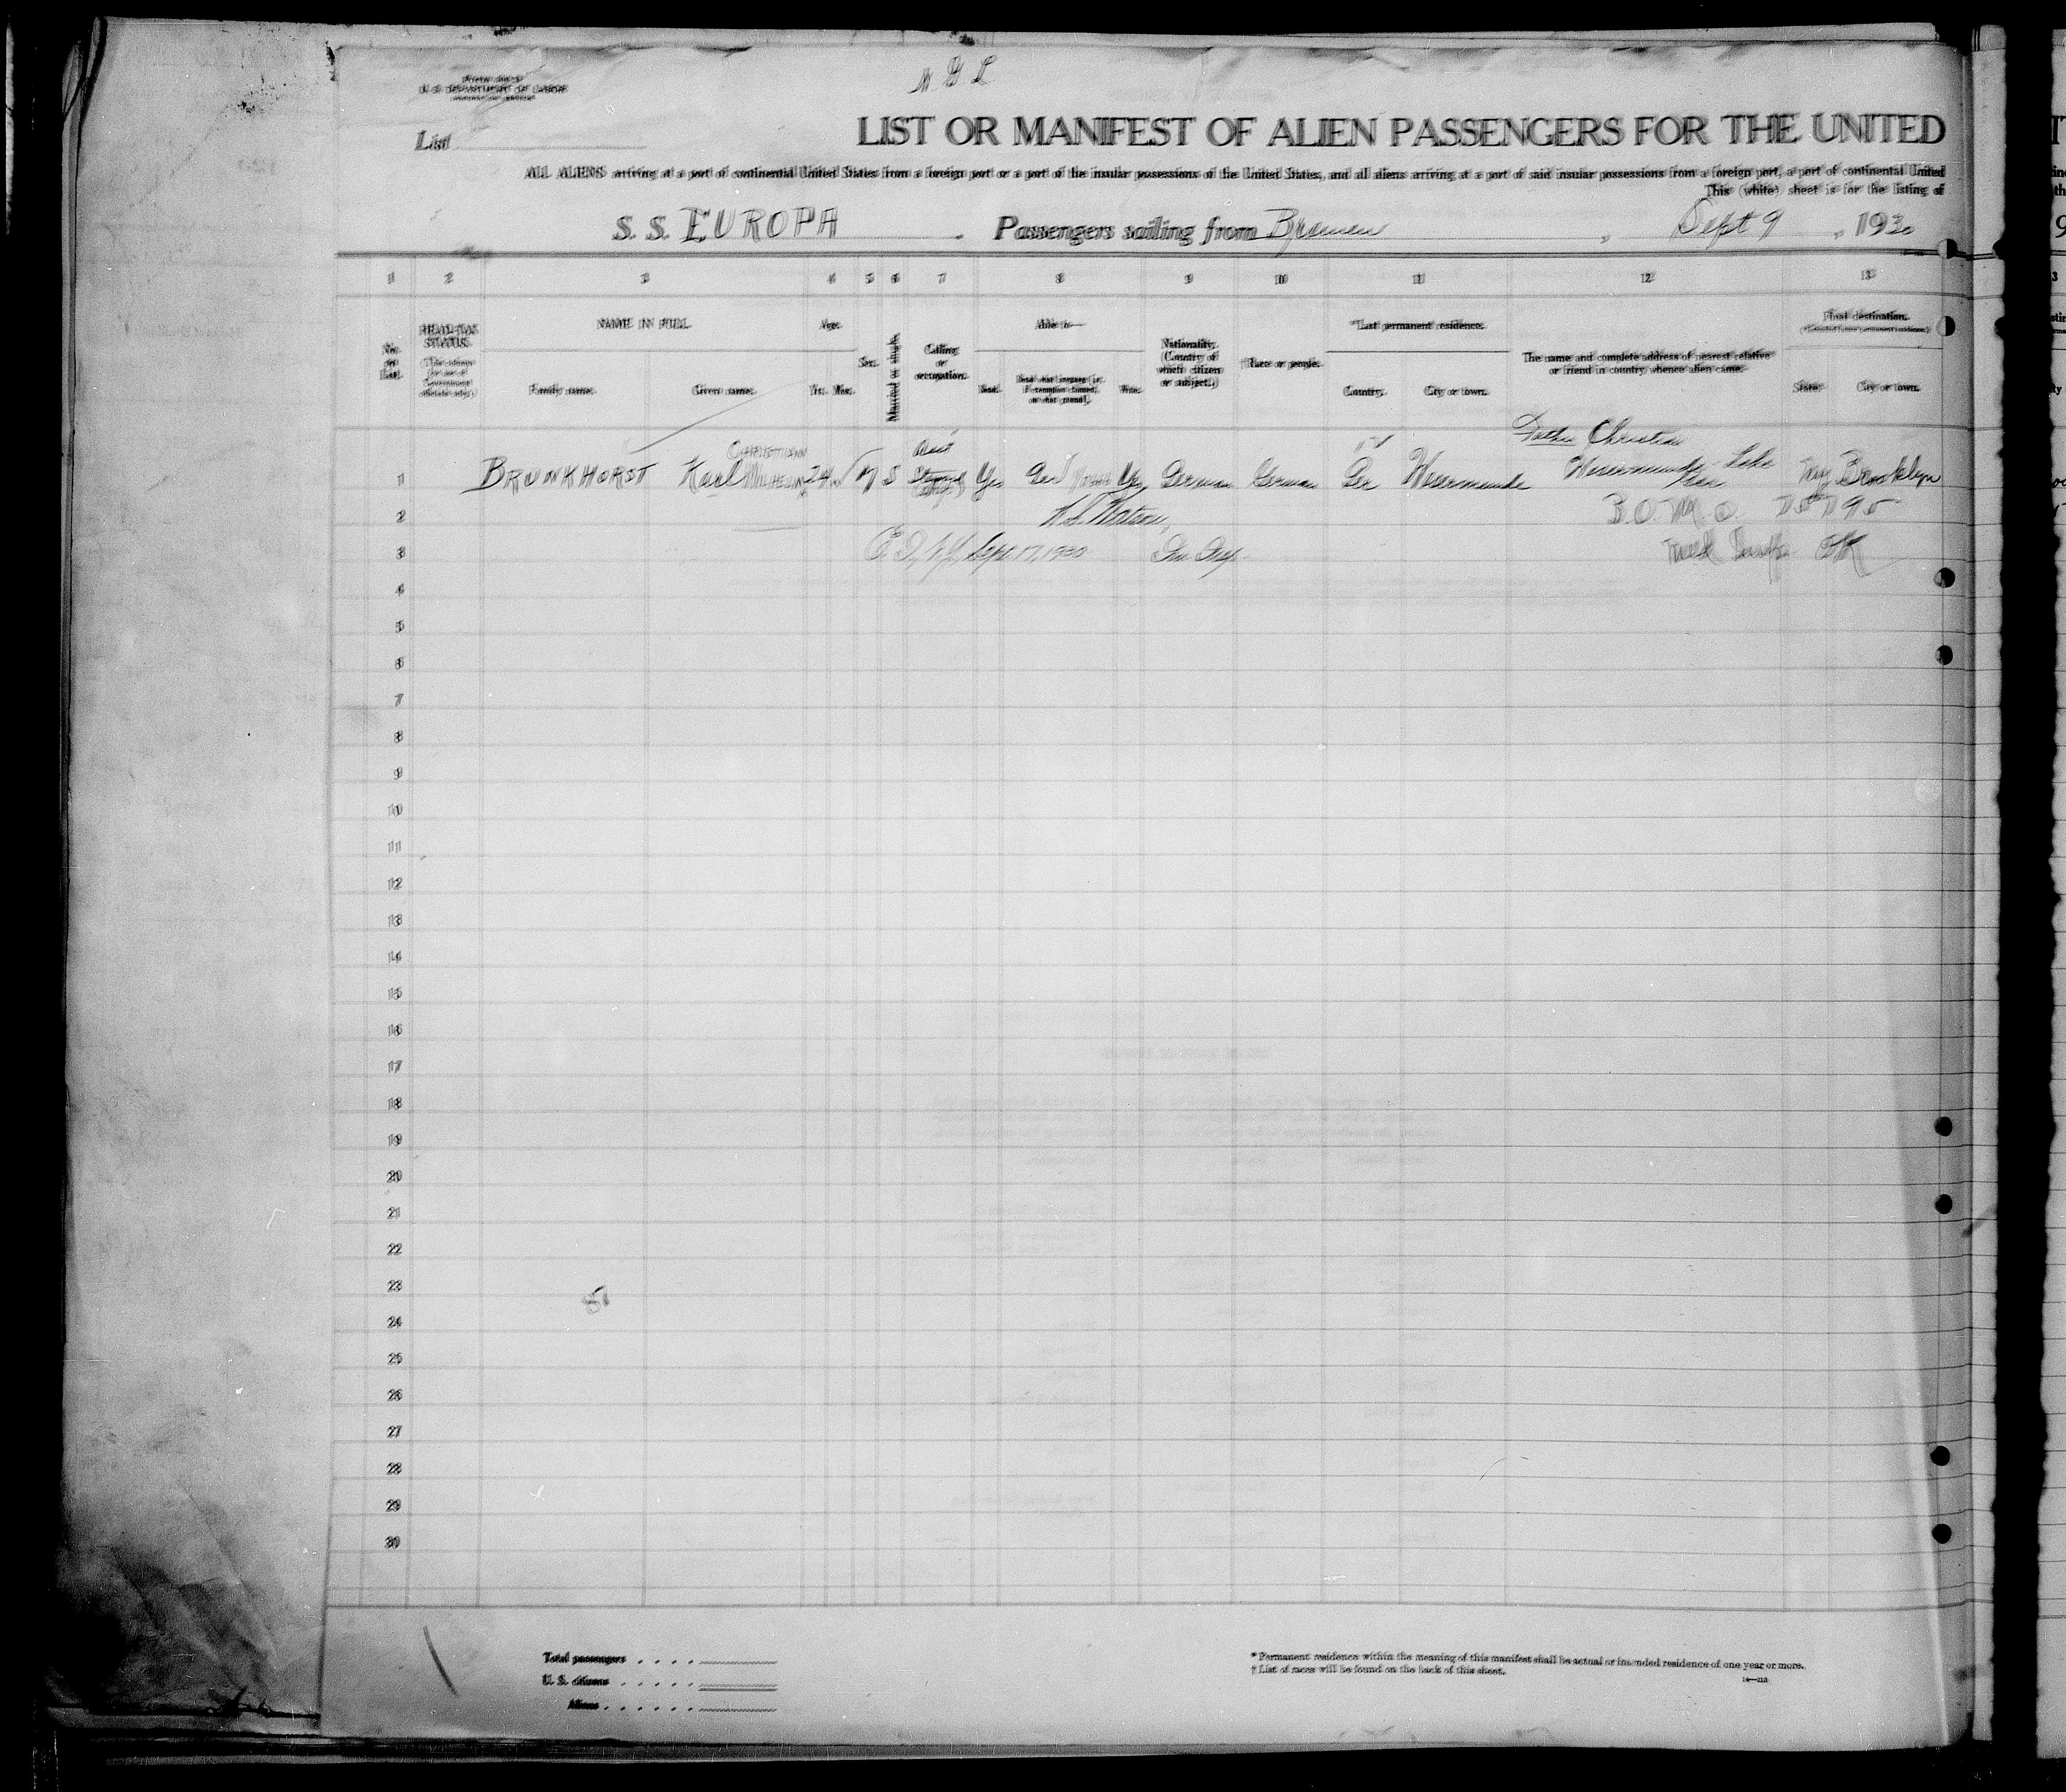 N G L
U. S. DEPARTMENT OF LABOR
List
LIST OR MANIFEST OF ALIEN PASSENGERS FOR THE UNITED
ALL ALIENS arriving at a port of continental United States from a foreign port or a port of the insular possessions of the United States, and all aliens arriving at a port of said insular possessions from a foreign port, a port of continental United
This (white) sheet is for the listing of
S. S. EUROPA Passengers sailing from Bremen, Sept 9, 1930
1 2 3 4 5 6 7 8 9 10 11 12 13
No. on List.
HEAD-TAX STATUS.
(This column for use of Government officials only.)
NAME IN FULL
Family name. Given name.
Age.
Yrs. Mos.
Sex.
Married or single.
Calling or occupation.
Able to—
Read. Read what language [or, if exemption claimed, on what ground]. Write.
Nationality. (Country of which citizen or subject.)
†Race or people.
*Last permanent residence.
Country. City or town.
The name and complete address of nearest relative or friend in country whence alien came.
Final destination.
State. City or town.
Father Christian
CHRISTIAN
1 BRUNKHORST Karl WILHELM 24 M S Yes Ger Yes German German Ger Wesermunde Wesermunde Lehe Ger NY Brooklyn
2
3 E I, N.Y. Sept. 17, 1930 OK
4
5
6
7
8
9
10
11
12
13
14
15
16
17
18
19
20
21
22
23
24
25
26
27
28
29
30
Total passengers
U. S. citizens
Aliens
* Permanent residence within the meaning of this manifest shall be actual or intended residence of one year or more.
† List of races will be found on the back of this sheet.